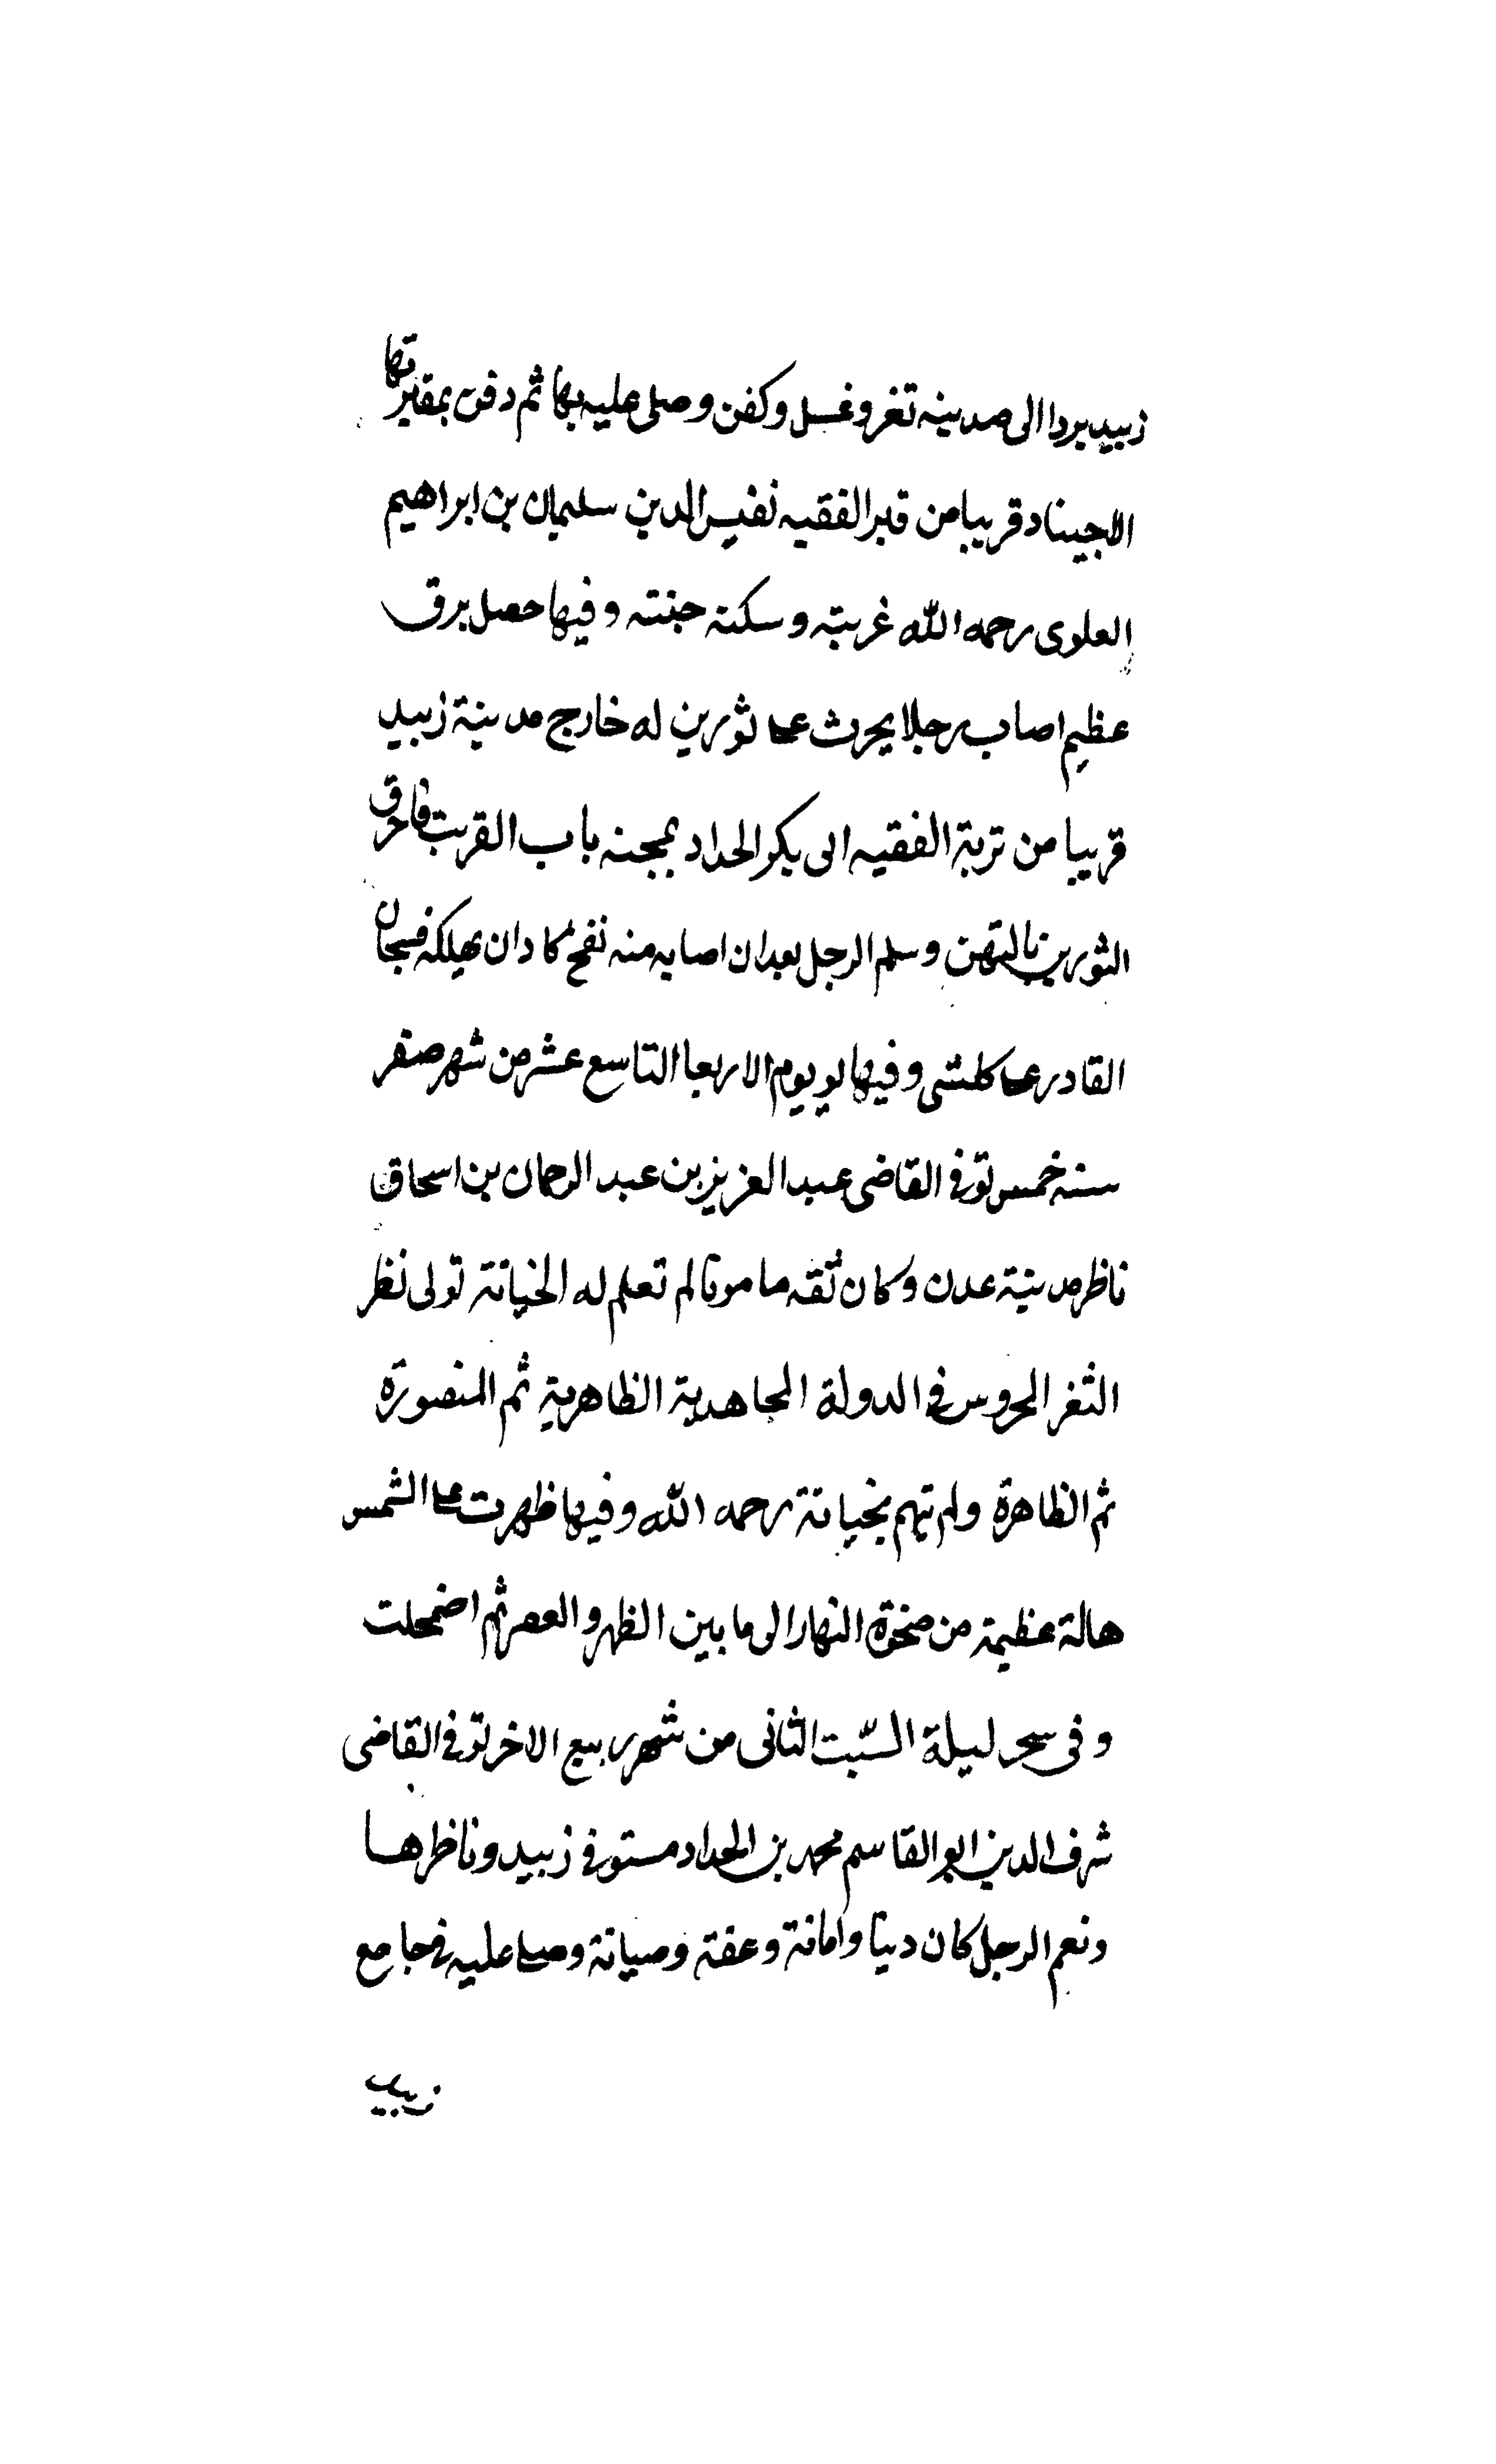 زبيد بردا الى مدينه تعز وغسل وكفن وصلى عليه بها ثم دفن بمقابرتها
الاجيناد قريبا من قبر الفقيه نفيس الدين سليمان بن ابراهيم
العلوى رحمه الله غربته وسكنه جنته وفيها حصل برق
عظيم اصاب رجلا يحرث على ثورين له خارج مدينة زبيد
قريبا من تربة الفقيه ابى بكر الحداد بمجنه باب القريب فاحرق
الثورين بالتهن وسلم الرجل بعد ان اصابه منه نفح كاد ان يهلكه فسبحان
القادر على كلشى وفيها يو يوم الاربعا التاسع عشر من شهر صفر
سنه خمس توفى القاضى عبد العزيز بن عبد الرحمان بن اسحاق
ناظر مدينة عدن وكان ثقه مامونا لم تعلم له الخيانة تولى نظر
الثغر المحروس فى الدولة المجاهدية الظاهرية ثم المنصورة
ثم الظاهرة ولم يتهم بخيانة رحمه الله وفيها ظهرت على الشمس
هالة عظيمة من ضحوة النهار الى ما بين الظهر والعصر ثم اضمحلت
وفى سحر ليلة السّبت الثانى من شهر ربيع الاخر توفى القاضى
شرف الدين ابو القاسم محمد بن الحداد مستوفى زبيد وناظرها
ونعم الرجل كان دينا وامانة وعفة وصيانة وصلى عليه فى جامع
زبيد